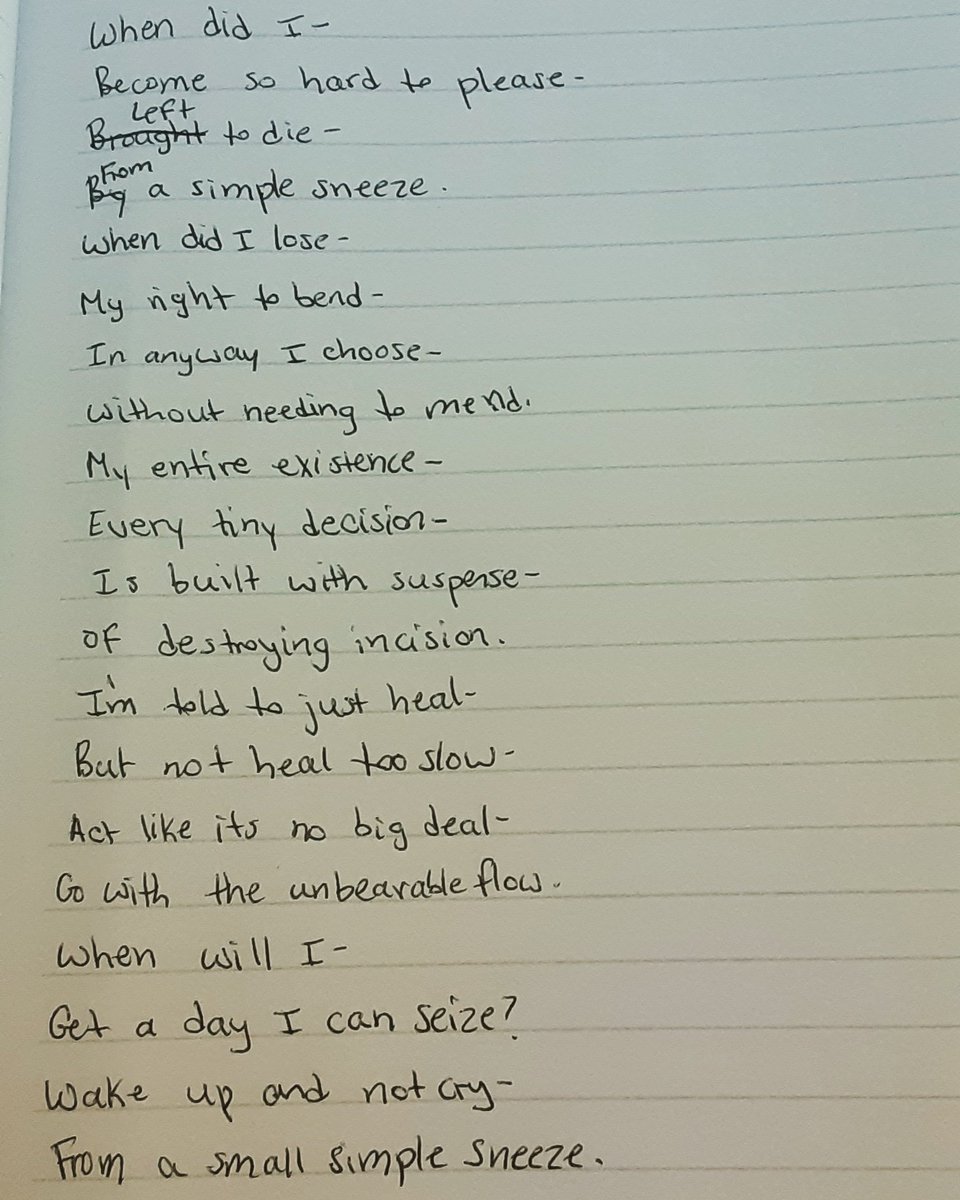 When did I-
Become so hard to please-
Left
Brought to die-
From
By a simple sneeze.
When did I lose-
My right to bend-
In anyway I choose-
Without needing to mend.
My entire existence-
Every tiny decision-
Is built with suspense-
Of destroying incision.
I'm told to just heal-
But not heal too slow-
Act like its no big deal-
Go with the unbearable flow.
When will I-
Get a day I can seize?
Wake up and not cry-
From a small simple sneeze.